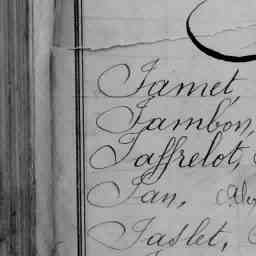 Jamet,
Jambon,
Jaffrelot,
Jan,
Jaslet,